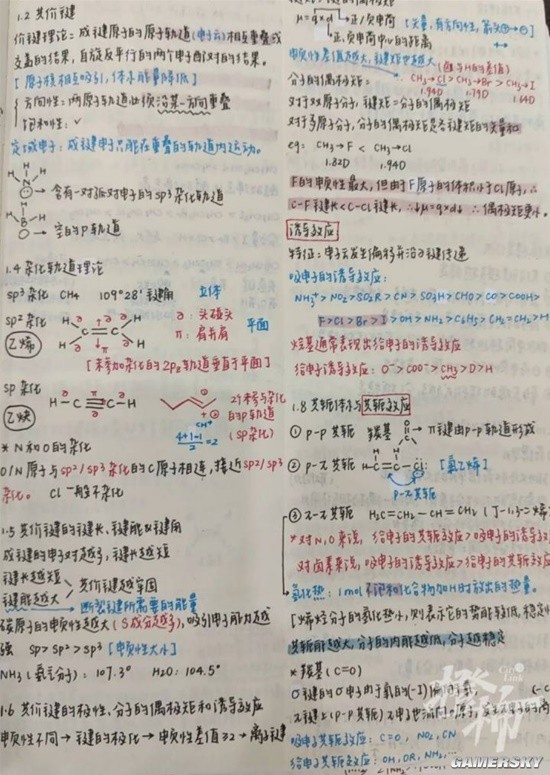 1.2 共价键
价键理论：成键原子的原子轨道(电子云)相互重叠或
交盖的结果，自旋反平行的两个电子配对的结果。
[原子核相互吸引，体系能量降低]
方向性：两原子轨道必须沿某一方向重叠
饱和性：√
定域电子：成键电子只能在重叠的轨道内运动。
H
H-N-H
→ 含有一对孤对电子的sp³杂化轨道
H-B-H
→ 空的p轨道
1.4 杂化轨道理论
sp³杂化 CH₄ 109°28' 键角 立体
sp²杂化
乙烯
H C=C H
σ：头碰头
π：肩并肩
平面
[未参加杂化的2p轨道垂直于平面]
sp杂化
乙炔
H-C≡C-H
CH⁺
4+1-1/2=2
2个未参与杂化
的p轨道
(sp杂化)
* N和O的杂化
O/N原子与sp²/sp³杂化的C原子相连，接近sp²/sp³
杂化。 Cl一般不杂化
1.5 共价键的键长、键能以键角
成键的电子对越多，键长越短
键长越短
键能越大
共价键越牢固
断裂键所需要的能量
碳原子的电负性越大(S成分越多)，吸引电子能力越
强 sp>sp²>sp³ [电负性大小]
NH₃(氨分子)：107.3° H₂O：104.5°
1.6 共价键的极性、分子的偶极矩和诱导效应
电负性不同→键的极化→电负性差值≥2→离子键
μ=q×d 正/负电荷 [矢量，有方向性，箭头⊕→⊖]
正、负电荷中心的距离
电负性差值越大，键矩越大
分子的偶极矩：
CH₃→Cl>CH₃→Br>CH₃→I
1.94D 1.79D 1.64D
对于双原子分子，键矩=分子的偶极矩
对于多原子分子，分子的偶极矩是各键矩的矢量和
eg： CH₃→F < CH₃→Cl
1.82D 1.94D
F的电负性最大，但由于F原子的体积小于Cl原子，∴
C-F键长<C-Cl键长，∴μ=q×d，∴偶极矩更小。
诱导效应
特征：电子云发生偏移并沿σ键传递
吸电子的诱导效应：
NH₃⁺>NO₂>SO₂R>CN>SO₃H>CHO>CO>COOH>
F>Cl>Br>I>OH>NH₂>C₆H₅>CH=CH₂>H
烃基通常表现出给电子的诱导效应
给电子诱导效应：O⁻>COO⁻>CH₃>D>H
1.8 共轭体系与共轭效应
① p-p共轭 羰基 C=O → π键由p-p轨道形成
② p-π共轭 H-C=C-Cl: [氯乙烯]
p-π共轭
③ π-π共轭 H₂C=CH₂-CH=CH₂ (丁-1,3-二烯
* 对N,O来说，给电子的共轭效应>吸电子的诱导效应
对卤素来说，吸电子的诱导效应>给电子的共轭效应
氢化热：1mol不饱和化合物加H时放出的热量。
共轭能越大，分子的内能越低，分子越稳定
* 羰基(C=O)
吸电子共轭效应：C=O, NO₂, CN
给电子共轭效应：OH, OR, NH₂,
橙柿
GAMERSKY